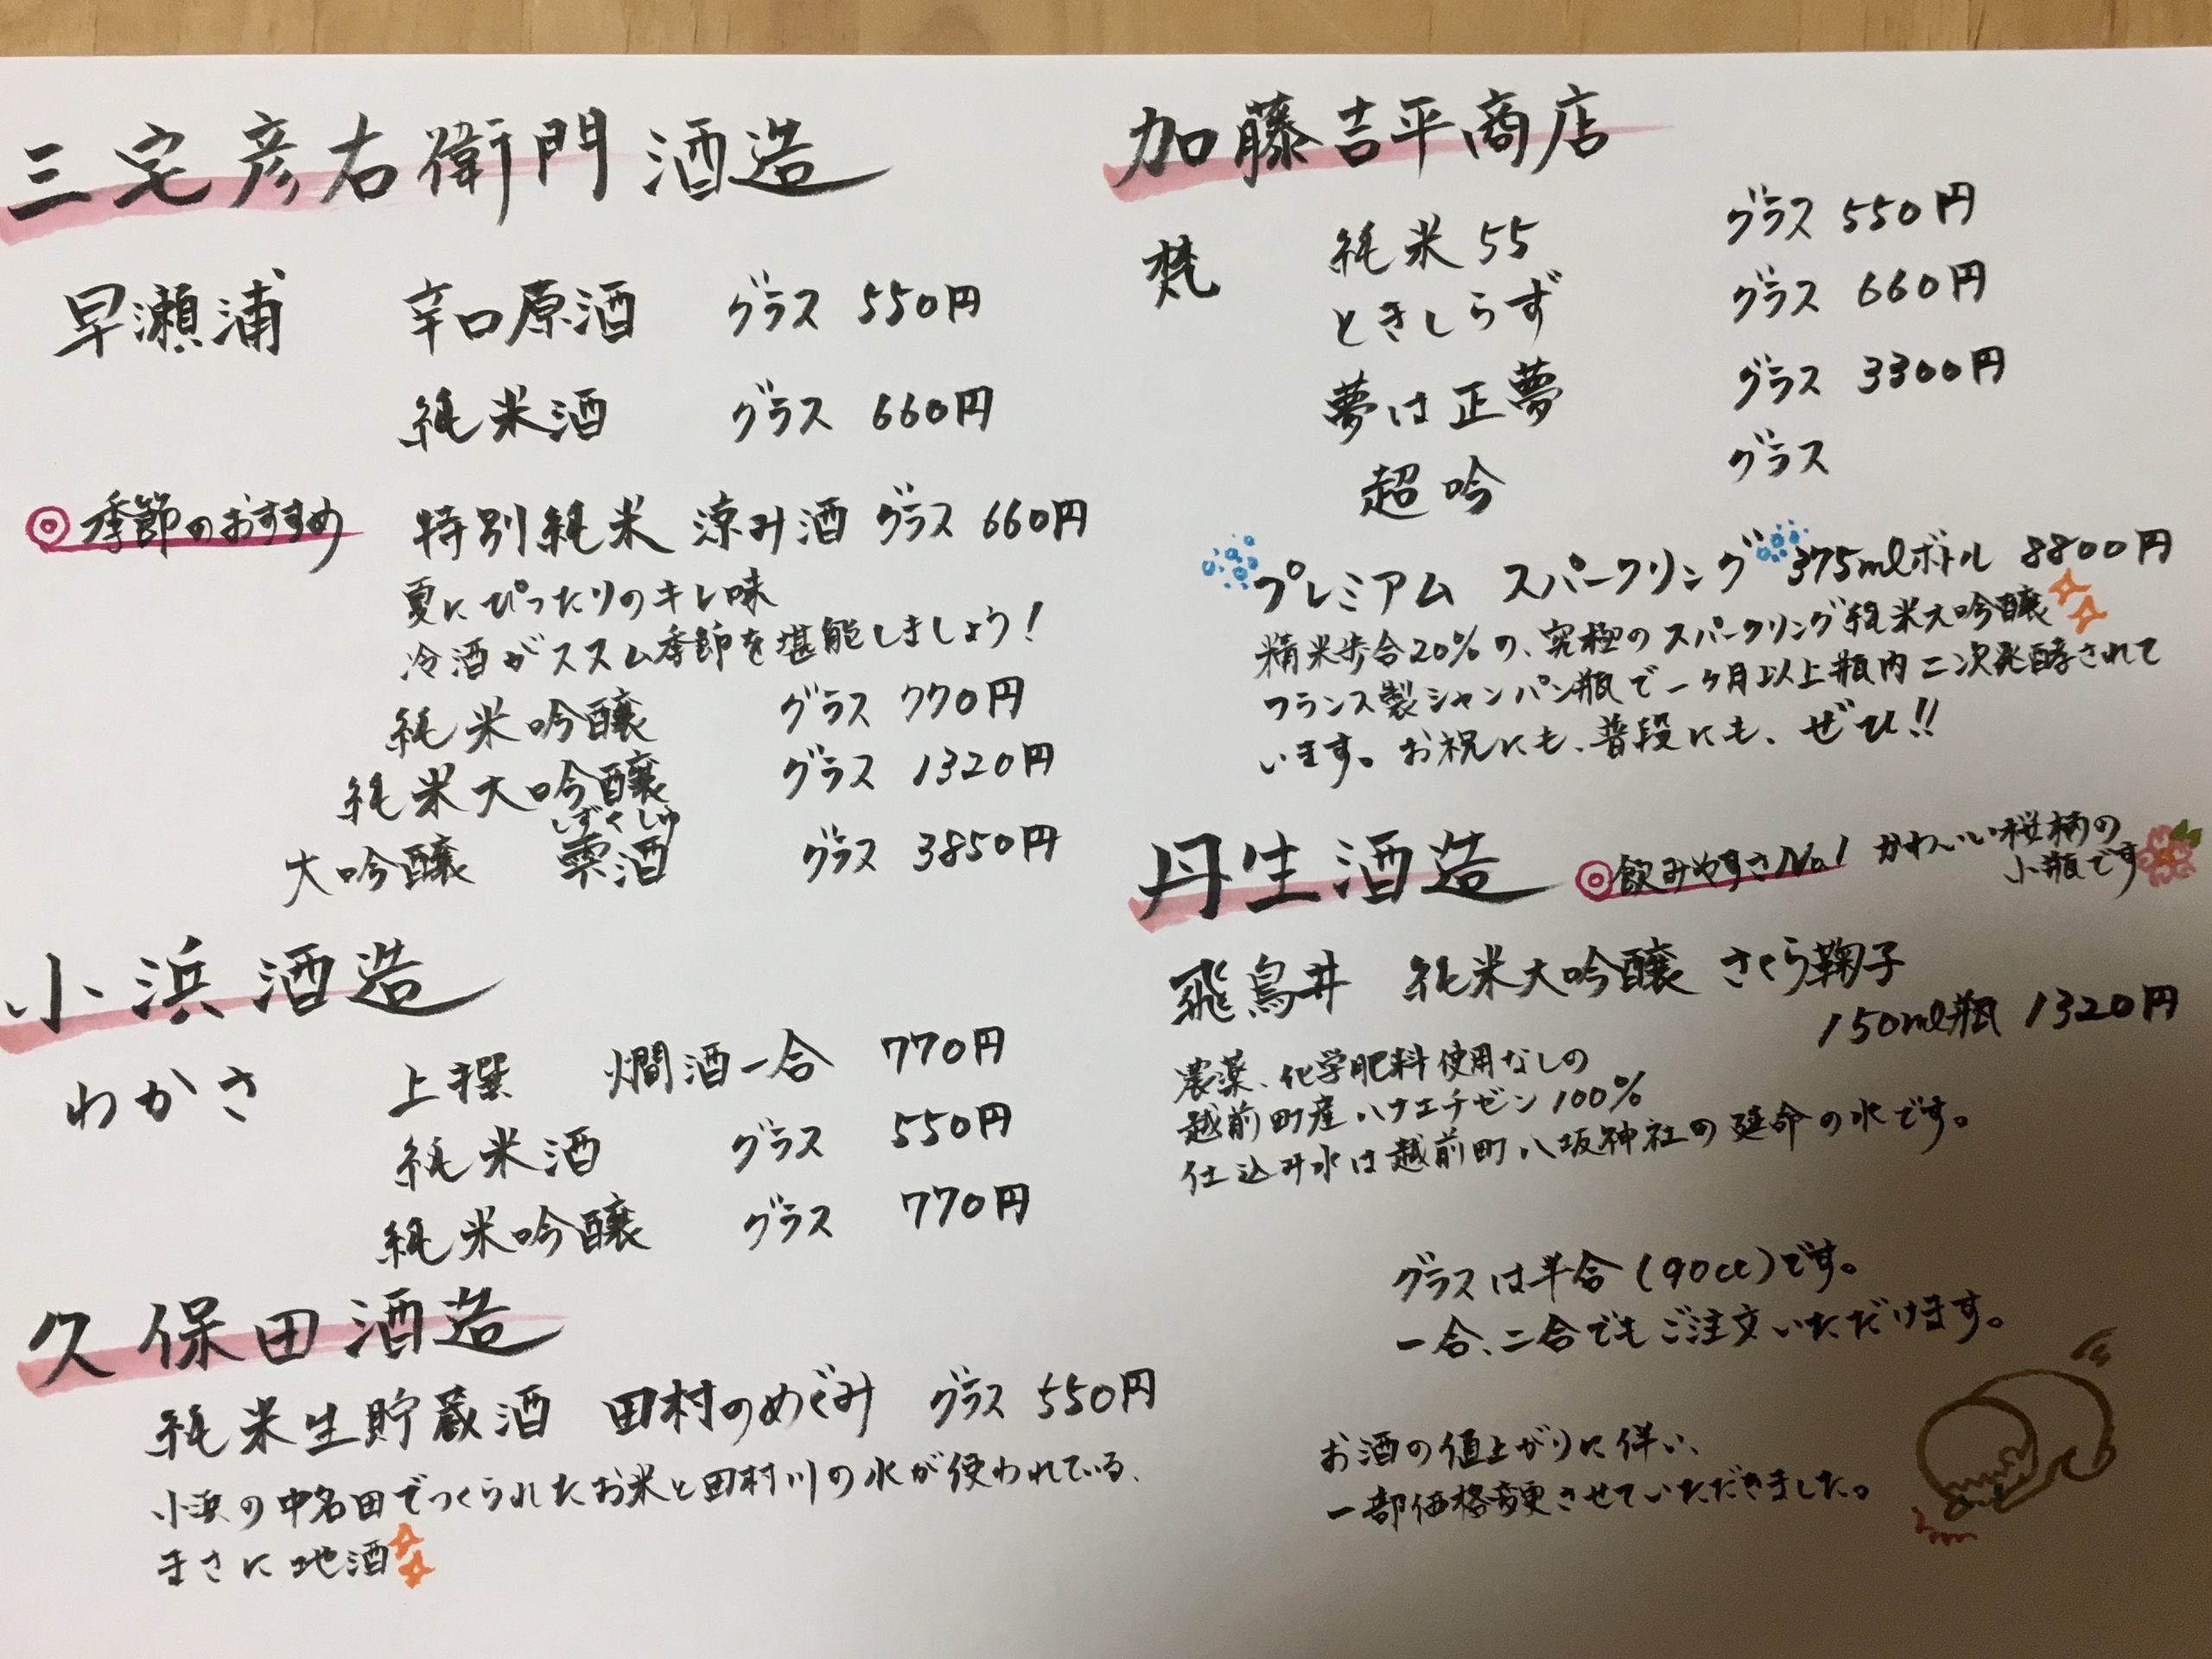 三宅彦右衛門酒造
早瀬浦 辛口原酒 グラス 550円
純米酒 グラス 660円
◎季節のおすすめ 特別純米 涼み酒 グラス 660円
夏にぴったりのキレ味
冷酒がススム季節を堪能しましょう!
純米吟醸 グラス 770円
純米大吟醸 グラス 1320円
しずくしゅ
大吟醸 雫酒 グラス 3850円
小浜酒造
わかさ 上撰 燗酒一合 770円
純米酒 グラス 550円
純米吟醸 グラス 770円
久保田酒造
純米生貯蔵酒 田村のめぐみ グラス 550円
小浜の中名田でつくられたお米と田村川の水が使われている、
まさに地酒
加藤吉平商店
梵 純米55 グラス 550円
ときしらず グラス 660円
夢は正夢 グラス 3300円
超吟 グラス
プレミアム スパークリング 375mlボトル 8800円
精米歩合20%の、究極のスパークリング純米大吟醸
フランス製シャンパン瓶で一ヶ月以上瓶内二次発酵されて
います。お祝にも、普段にも、ぜひ!!
丹生酒造 ◎飲みやすさNo.1 かわいい桜柄の
小瓶です
飛鳥井 純米大吟醸 さくら鞠子
150ml瓶 1320円
農薬、化学肥料使用なしの
越前町産ハナエチゼン100%
仕込み水は越前町八坂神社の延命の水です。
グラスは半合(90cc)です。
一合、二合でもご注文いただけます。
お酒の値上がりに伴い、
一部価格変更させていただきました。